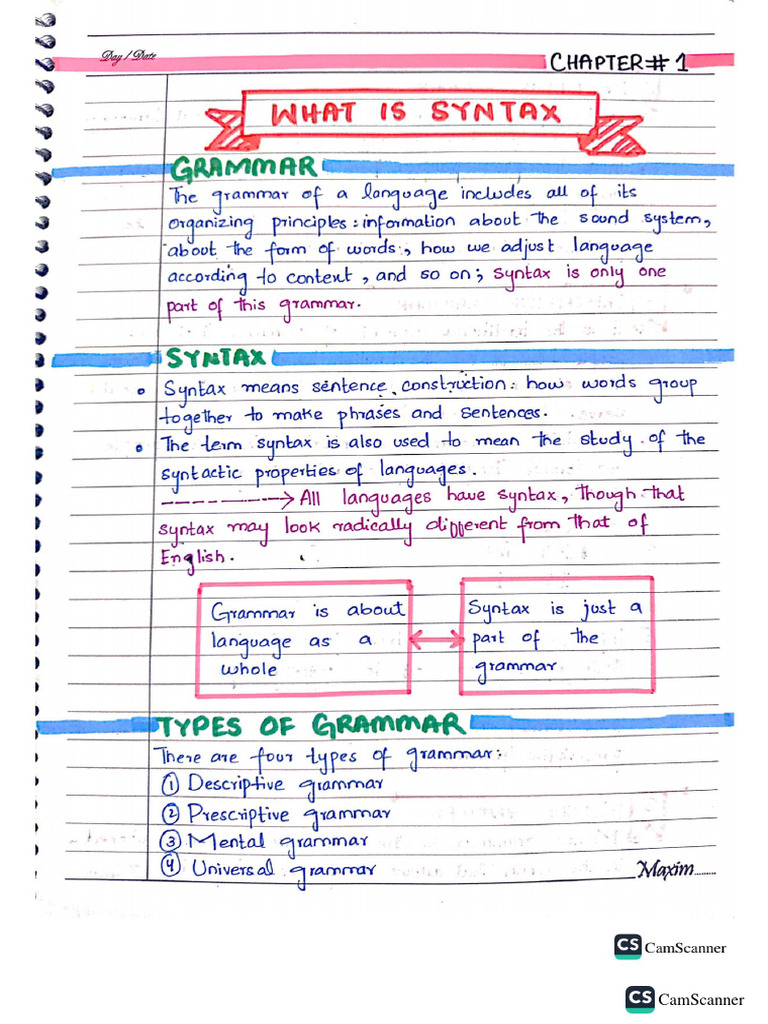 Day / Date
CHAPTER# 1
WHAT IS SYNTAX
GRAMMAR
The grammar of a language includes all of its
organizing principles: information about the sound system,
about the form of words, how we adjust language
according to content, and so on; syntax is only one
part of this grammar.
SYNTAX
• Syntax means sentence construction: how words group
together to make phrases and sentences.
• The term syntax is also used to mean the study of the
syntactic properties of languages.
----------→ All languages have syntax, though that
syntax may look radically different from that of
English.
Grammar is about
language as a
whole
Syntax is just a
part of the
grammar
TYPES OF GRAMMAR
There are four types of grammar:
① Descriptive grammar
② Prescriptive grammar
③ Mental grammar
④ Universal grammar
Maxim
CS CamScanner
CS CamScanner